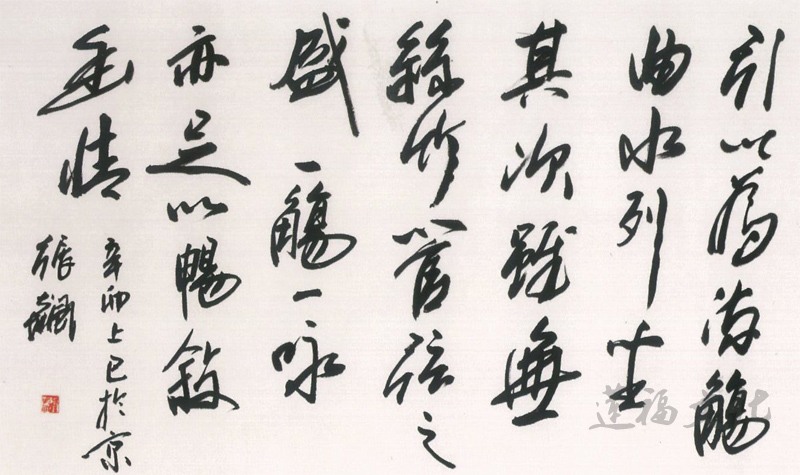 引以為流觴
曲水列坐
其次雖無
絲竹管弦之
盛一觴一咏
亦足以暢敘
幽情
辛卯上巳於京
張